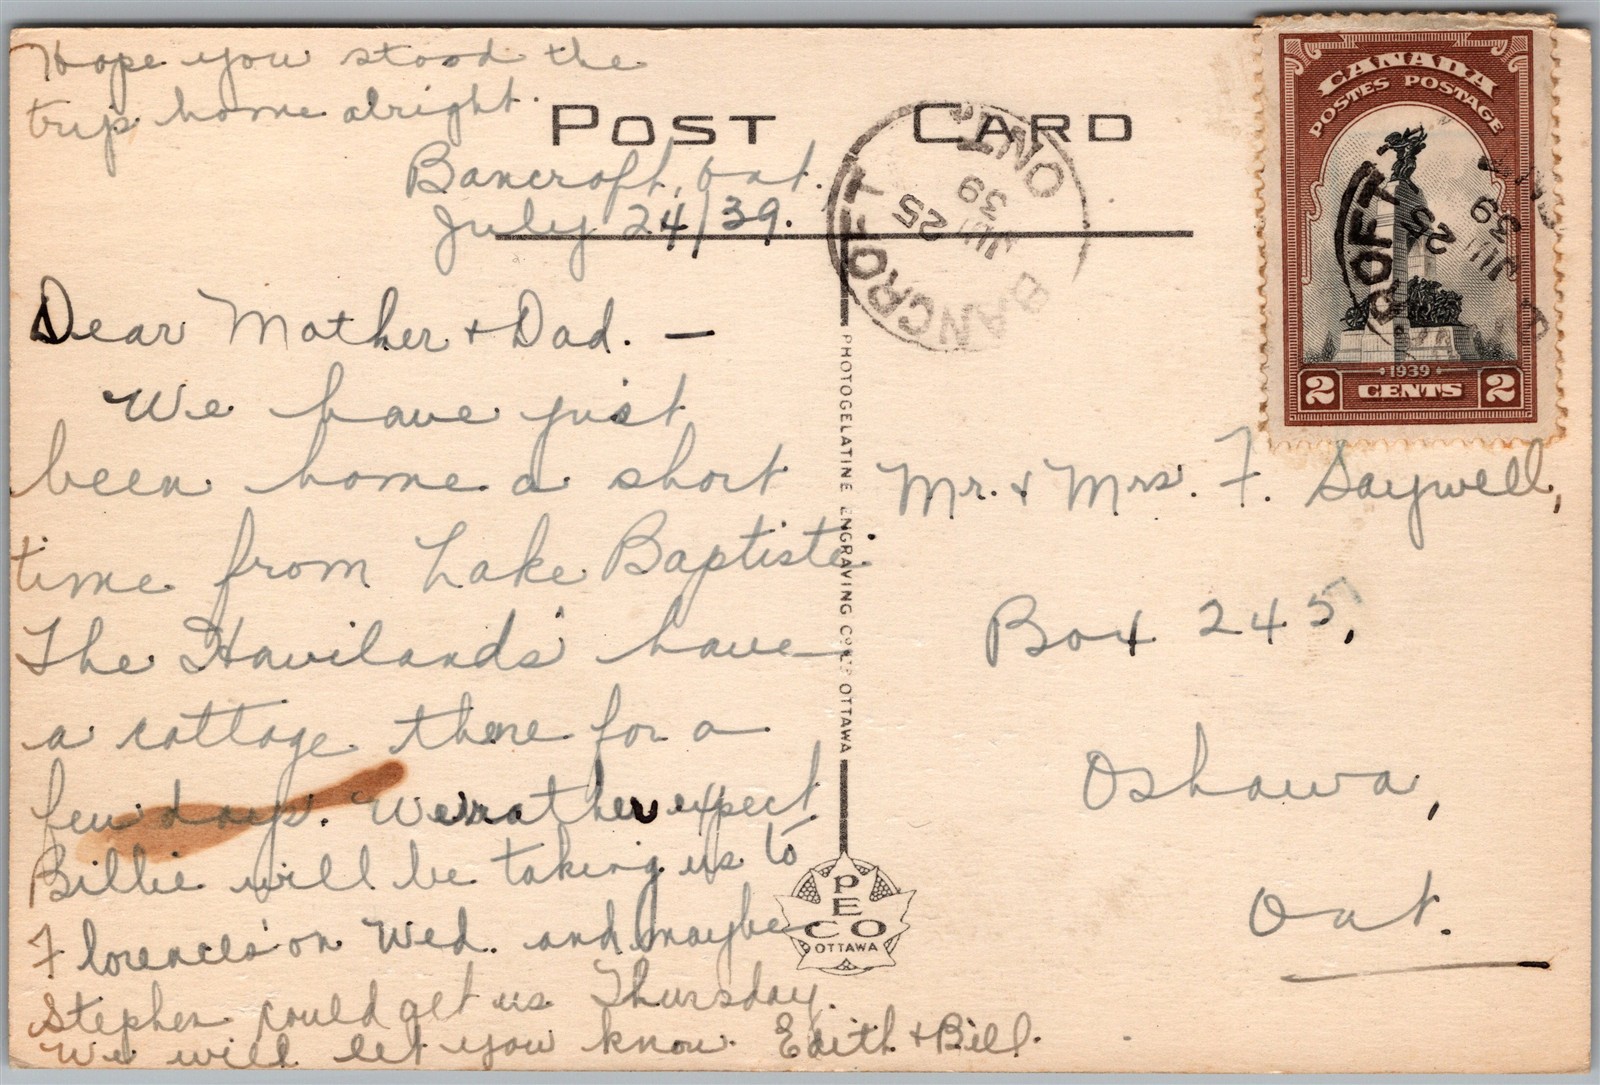 Hope you stood the
trip home alright.
POST CARD
Bancroft, Ont.
July 24/39.
Dear Mother + Dad. —
We have just
been home a short
time from Lake Baptiste.
The Havilands' have
a cottage there for a
few days. We rather expect
Billie will be taking us to
Florences' on Wed. and maybe
Stephen could get us Thursday.
We will let you know. Edith + Bill.
PHOTOGELATINE ENGRAVING CO. LTD OTTAWA
PECO
OTTAWA
BANCROFT
ONT.
JUL 25
39
CANADA
POSTES POSTAGE
1939
2 CENTS 2
ROFT
25
JUL
39
Mr. + Mrs. F. Saywell,
Box 245,
Oshawa,
Ont.